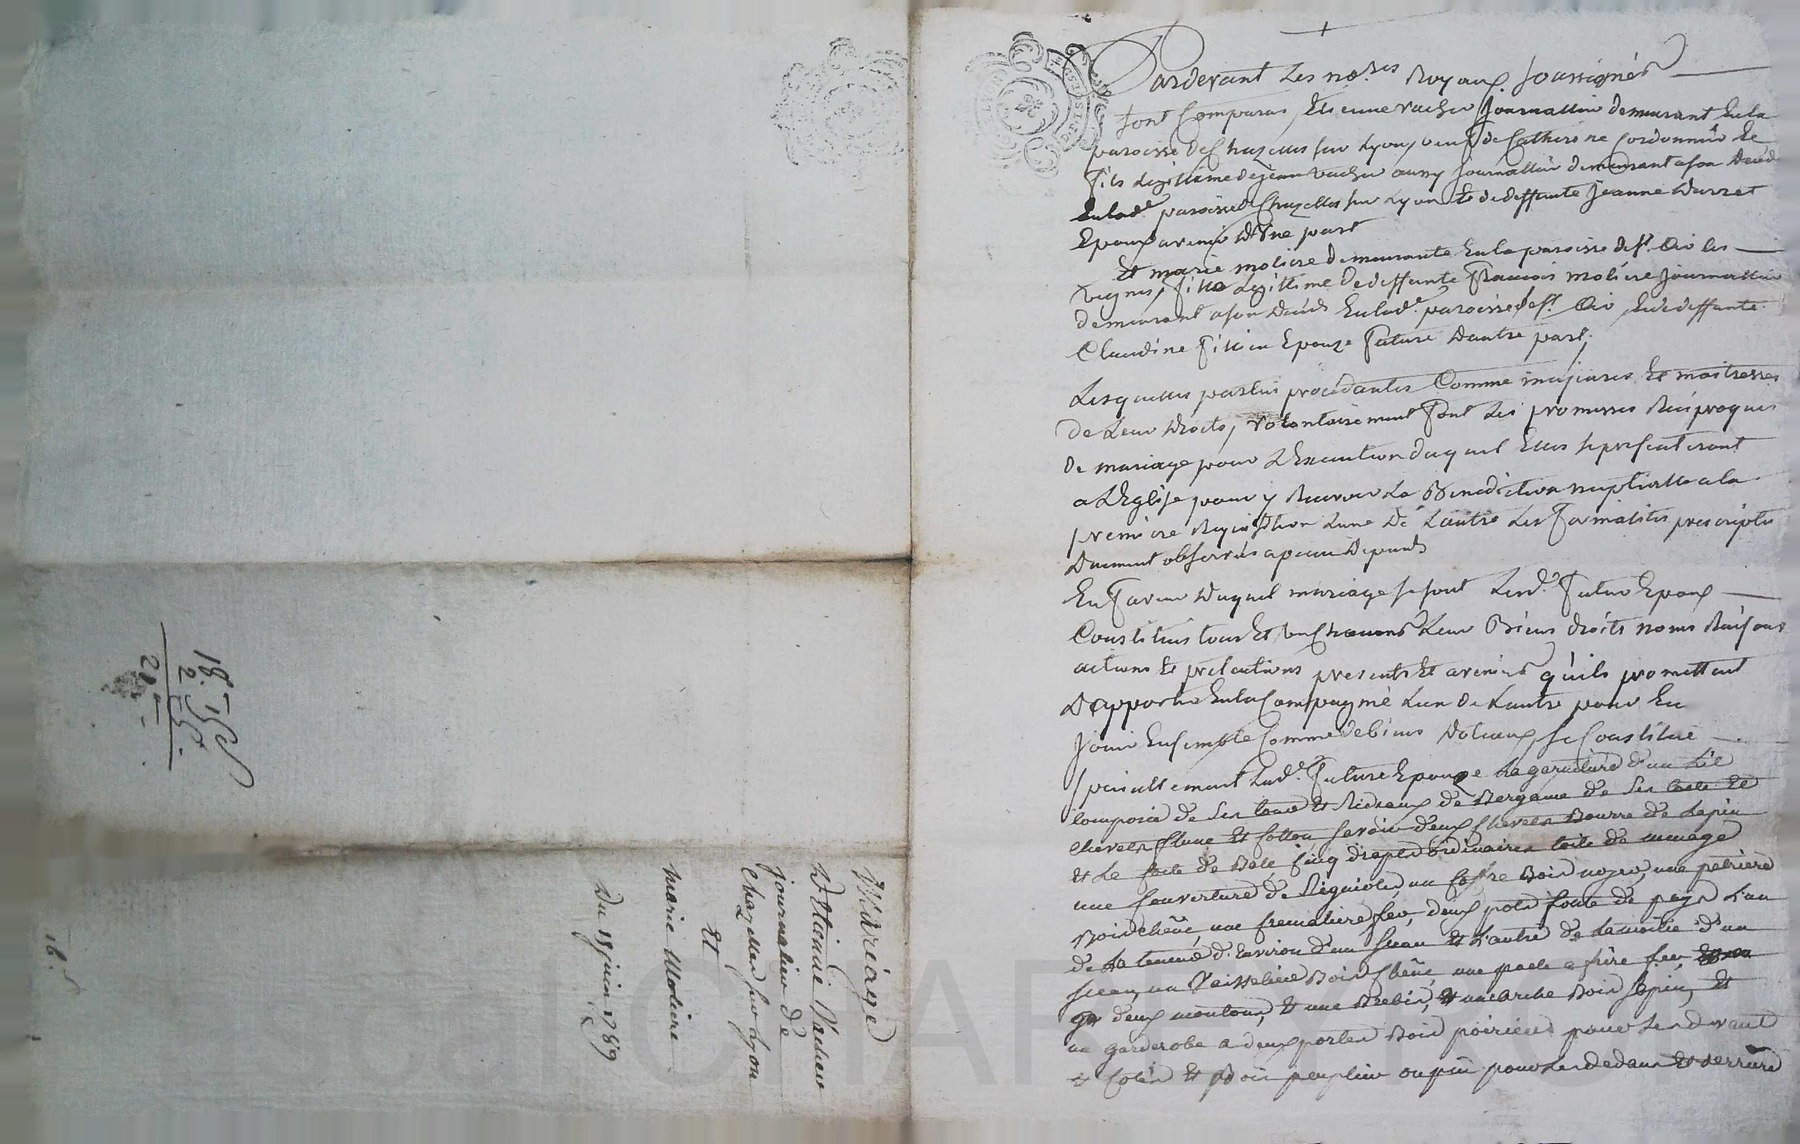 Pardevant Les no.res Royaux soussignés
sont Comparus Etienne vacher Journallier demeurant En la
paroisse de Chazelles sur Lyon, veuf de Catherine Cordonnier Et
fils Légittime de jean vacher aussy journallier demeurant a son Deced
En lad.e paroisse de Chazelles sur Lyon Et de deffunte Jeanne
Epoux avenir d'une part
Et marie moliere demeurante En la paroisse de S.t les
vignes, fille Légittime de deffunt François moliere Journallier
demeurant a son Décéds En lad.e paroisse de S.t Et de deffunte
Claudine Epouze future D'autre part,
Lesquelles parties procédantes Comme majeures Et maitresses
de Leur Droits, volontairement font Les promesses Réciproques
de mariage pour L'Execution duquel Elles se présenteront
a L'Eglise pour y Recevoir La Bénédiction nuptialle a la
premiere Requisition L'une De L'autre Les formalités prescriptes
Duement observés a peine Depends
En faveur Duquel mariage se sont Lesd.s futurs Epoux
Constitués tous Et un Chacuns Leur Biens droits noms Raisons
actions Et prétentions presents Et avenirs qu'ils promettent
D'apporter En la Compagnie L'un de L'autre pour En
jouir Ensemble Comme de biens Dotaux se Constitue
specialement Lad.e future Epouze La garniture d'un Lit
composée de Ses tours Et Rideaux de Bergame de Ses
chevets plume Et Cotton savoir deux chevets Bourre de Lapin
et Le de Bale, cinq draps ordinaires toile de menage
une Couverture de un Coffre Bois noyer, une petriere
Bois chêne, une cremaliere fer, deux pots fonte de pays L'un
de La teneur d'Environ d'un sceau et L'autre de La moitié d'un
sceau, un Vaisselier Bois chêne, une poele a frire fer
deux moutons, Et une Brebis, Et une arche Bois sapin, Et
un garderobe a deux portes Bois poirier pour Les devant
et Cotés Et Bois peuplier ou pin pour Les dedans et derriere
Mariage
D'Etienne Vacher
journalier de
Chazelles sur Lyon
Et
Marie Moliere
Du 15 juin 1789